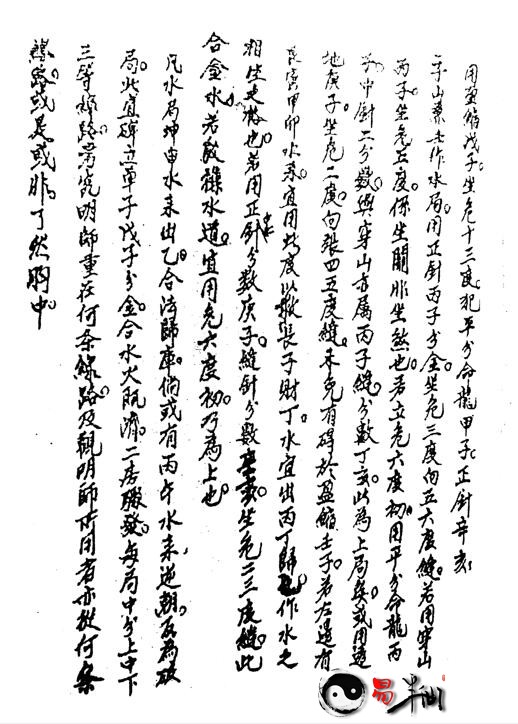 用盈縮戊子坐危十三度犯平分命龍甲子正針辛亥
子山兼壬作水局用正針丙子分金坐危三度向五六度縫若用穿山
丙子坐危五度係坐關非坐煞也若立危六度初用平分命龍丙
子中針二分數與穿山亦屬丙子縫分數丁亥此為上局矣或用透
地庚子坐危二度向張四五度縫未免有碍於盈縮壬子若左邊有
艮寅甲卯水來宜用此度以撥長子財丁水宜出丙丁歸作水之
相生是格也若用正針分數庚子縫針分數坐危二三度縫此
合金水若放祿水道宜用危六度初乃為上也
凡水局坤申水來出乙合法歸庫倘或有丙午水來逆朝反為破
局此宜碑立單子戊子分金合水火既濟二房驟發每局中分上中下
三等線路考究明師重在何条線路及觀明師所用者亦從何条
線路或是或非了然胸中
易半仙